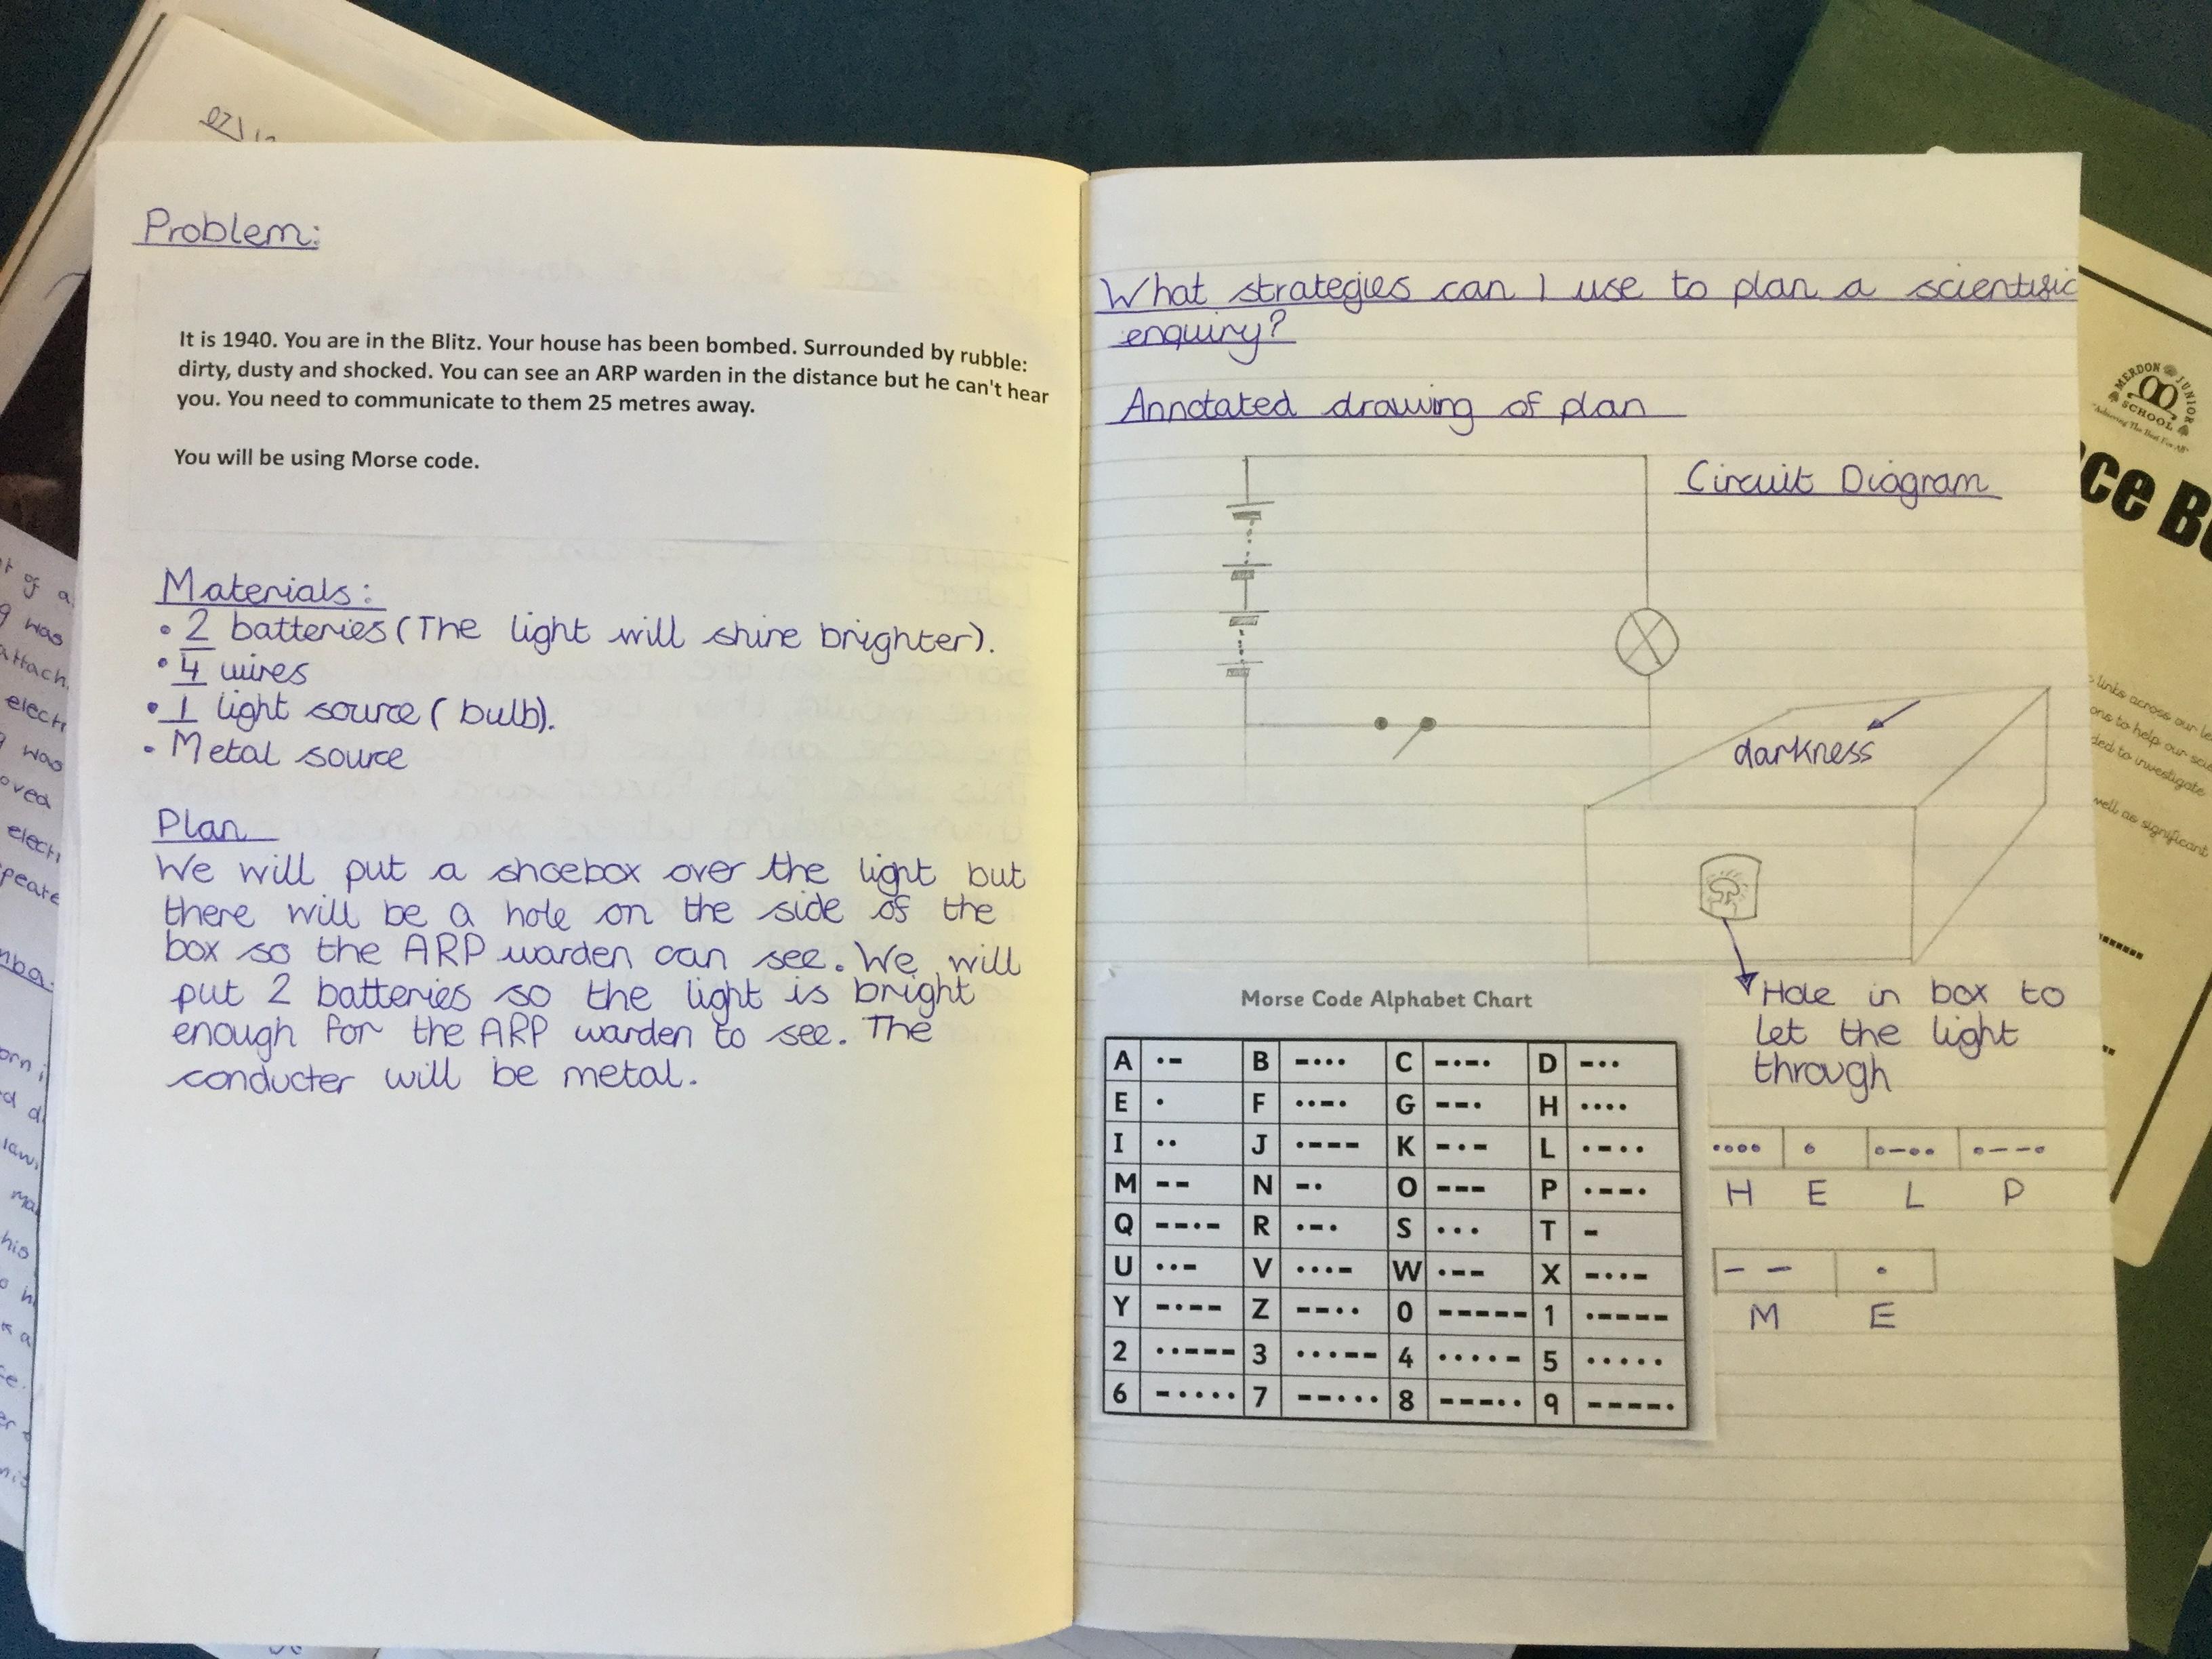 Problem:
It is 1940. You are in the Blitz. Your house has been bombed. Surrounded by rubble:
dirty, dusty and shocked. You can see an ARP warden in the distance but he can't hear
you. You need to communicate to them 25 metres away.
You will be using Morse code.
Materials:
• 2 batteries (The light will shine brighter).
• 4 wires
• 1 light source (bulb).
• Metal source
Plan
We will put a shoebox over the light but
there will be a hole on the side of the
box so the ARP warden can see. We will
put 2 batteries so the light is bright
enough for the ARP warden to see. The
conducter will be metal.
What strategies can I use to plan a scientific
enquiry?
Annotated drawing of plan
Circuit Diagram
darkness
Hole in box to
let the light
through
Morse Code Alphabet Chart
A •- B -••• C -•-• D -••
E • F ••-• G --• H ••••
I •• J •--- K -•- L •-••
M -- N -• O --- P •--•
Q --•- R •-• S ••• T -
U ••- V •••- W •-- X -••-
Y -•-- Z --•• 0 ----- 1 •----
2 ••--- 3 •••-- 4 ••••- 5 •••••
6 -•••• 7 --••• 8 ---•• 9 ----•
•••• • •-•• •--•
H E L P
-- •
M E
MERDON JUNIOR
SCHOOL
"Achieving The Best For All"
ce B
links across our
ons to help our
ded to investigate
well as significant
of a
was
attach
elect
was
oved
elect
his